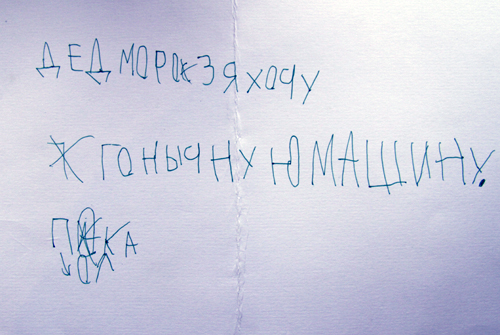 ДЕД МОРОЖЗ Я ХОЧУ
Ж ГОНЫЧНУ Ю МАШИНУ.